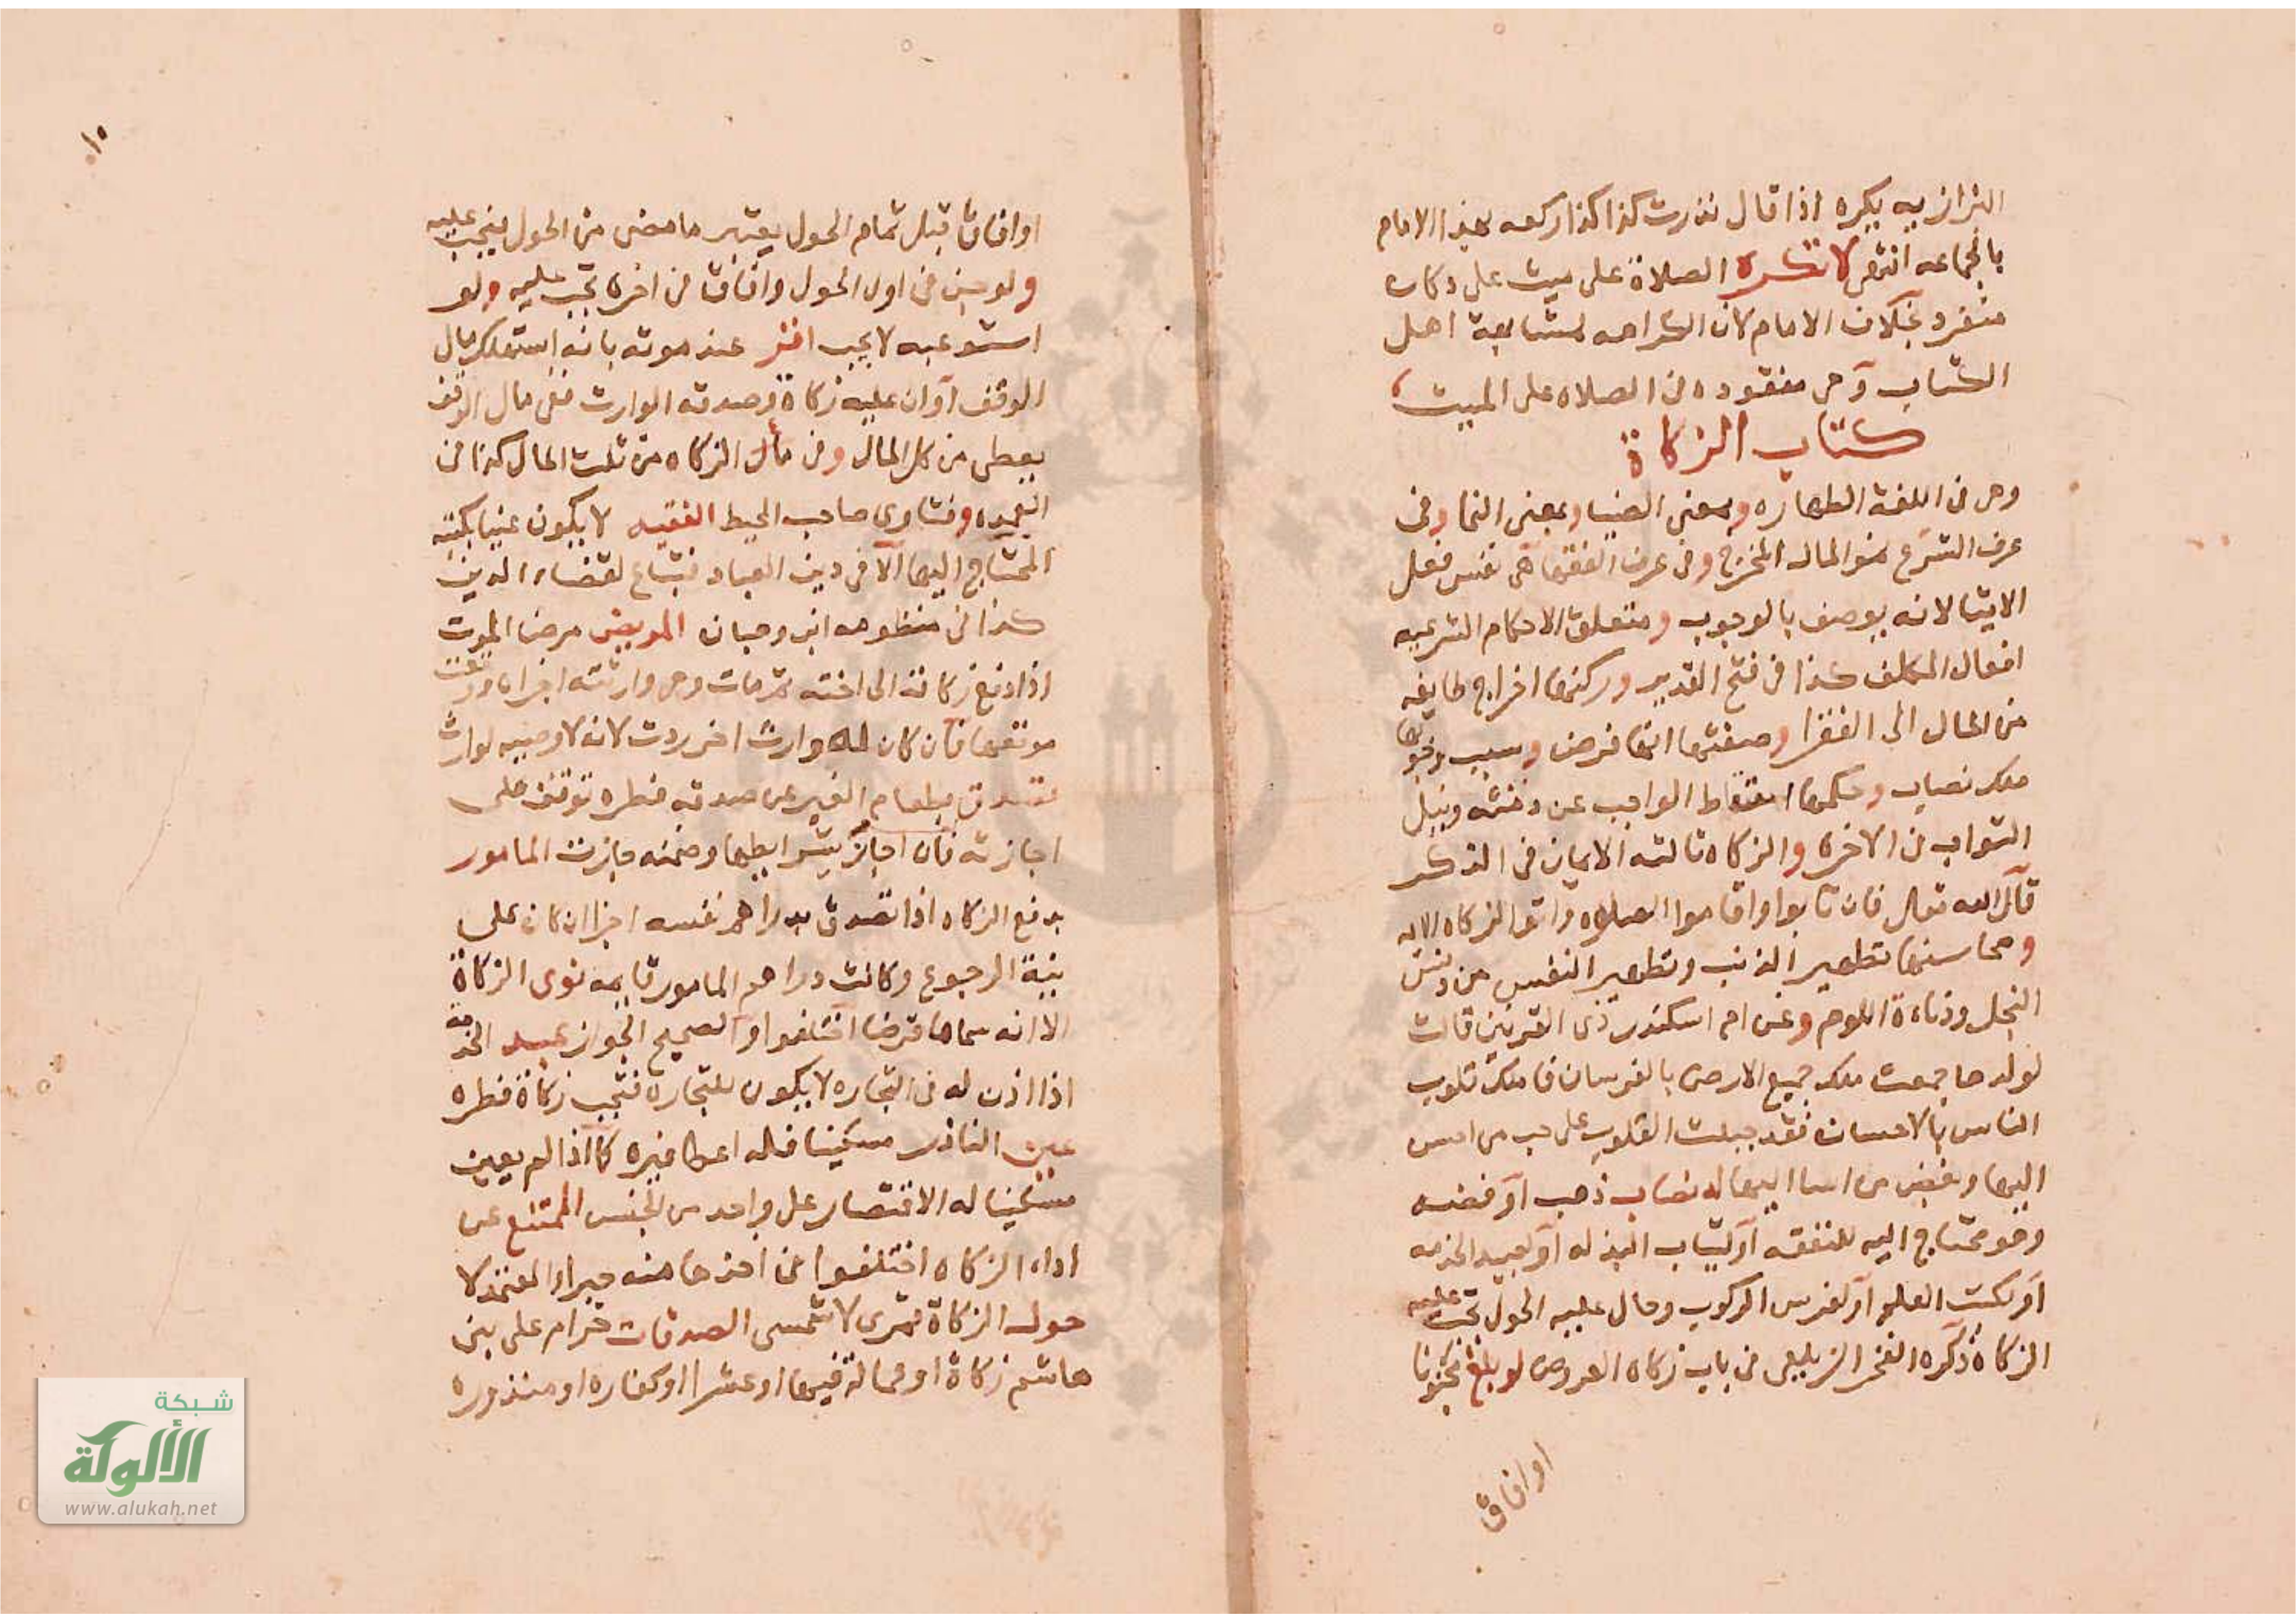 البزازيه يكره اذا قال نذرت كذا كذا ركعه بهذا الامام
بالجماعه انتهى لا تكره الصلاة على ميت على دكان
منفرد بخلاف الامام لان الكراهه لمشابهة اهل
الكتاب وهى مفقوده فى الصلاه على الميت
كتاب الزكاة
وهى فى اللغة الطهاره وبمعنى الضيا وبمعنى النما وفى
عرف الشرع هو المال المخرج وفى عرف الفقها هى نفس فعل
الايتا لانه يوصف بالوجوب ومتعلق الاحكام الشرعيه
افعال المكلف كذا فى فتح القدير وركنها اخراج طايفه
من المال الى الفقرا وصفتها انها فرض وسبب وجوبها
ملك نصاب وحكمها اسقاط الواجب عن ذمته ونيل
الثواب فى الاخره والزكاه ثالثه الايمان فى الذكر
قال الله تعالى فان تابوا واقاموا الصلوه واتوا الزكاه الايه
ومحاسنها تطهير الذنب وتطهير النفس من دنس
البخل ودناءة اللوم وعن ام اسكندر ذى القرنين قالت
لولدها جمعت ملك جميع الارض بالفرسان فاملك قلوب
الناس بالاحسان فقد جبلت القلوب على حب من احسن
اليها وبغض من اسا اليها له نصاب ذهب او فضه
وهو محتاج اليه للنفقه او لثياب البذله او لعبيد الخدمه
او لكتب العلم او لفرس الركوب وحال عليه الحول تجب عليه
الزكاة ذكره الفخر الزيلعى فى باب زكاه العروض لو بلغ مجنونا
او افاق
١٥
او افاق قبل تمام الحول يعتبر ما مضى من الحول فيجب عليه
ولو جن فى اول الحول وافاق فى اخره تجب عليه ولو
استوعبه لا يجب اقر عند موته بانه استهلك مال
الوقف او ان عليه زكاة وصدقه الوارث ففى مال الوقف
يعطى من كل المال وفى مال الزكاه من ثلث المال كذا فى
العمده وفتاوى صاحب المحيط الفقيه لا يكون غنيا بكتبه
المحتاج اليها الا فى دين العباد فتباع لقضاء الدين
كذا فى منظومه ابن وهبان المريض مرض الموت
اذا دفع زكاته الى اخته ثم مات وهى وارثته اجزاه ووقعت
موقعها فان كان له وارث اخر ردت لانه لا وصيه لوارث
تصدق بطعام الغير عن صدقه فطره توقف على
اجازته فان اجاز بشرايطها وضمنه جازت المامور
بدفع الزكاه اذا تصدق بدراهم نفسه اجزا ان كان على
نية الرجوع وكانت دراهم المامور قايمه نوى الزكاة
الا انه سماها قرضا اختلفوا والصحيح الجواز عبد الخدمه
اذا اذن له فى التجاره لا يكون للتجاره فتجب زكاة فطره
عين الناذر مسكينا فله اعطا غيره كما اذا لم يعين
مسكينا له الاقتصار على واحد من الجنس الممتنع عن
اداء الزكاه اختلفوا فى اخذها منه جبرا والمعتمد لا
حول الزكاة قمرى لا شمسى الصدقات حرام على بنى
هاشم زكاة او عمالة فيها او عشرا او كفاره او منذوره
شبكة
الألوكة
www.alukah.net